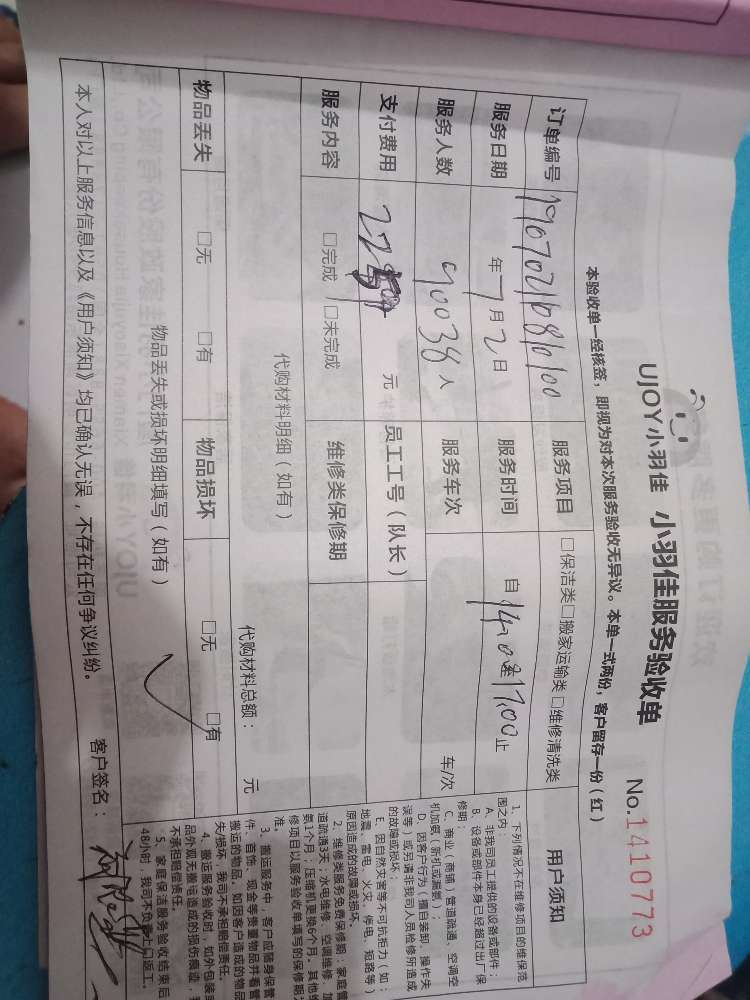 UJOY小羽佳 小羽佳服务验收单
No.1410773
本验收单一经核签，即视为对本次服务验收无异议。本单一式两份，客户留存一份（红）
订单编号 服务项目 □保洁类□搬家运输类 □维修清洗类
服务日期 年7月2日 服务时间 自14:00至17:00止
服务人数 90038人 服务车次 车/次
支付费用 元 员工工号（队长）
服务内容 □完成 □未完成 维修类保修期
代购材料明细（如有） 代购材料总额： 元
物品丢失 □无 □有 物品损坏 □无 □有
物品丢失或损坏明细填写（如有）
用户须知
1. 下列情况不在维修项目的维保范
围之内：
A、非我司员工提供的设备或部件；
B、设备或部件本身已经超过出厂保
修期；
C、商业（商铺）管道疏通、空调空
机加氨（新机或漏氨）；
D、因客户行为（擅自装卸、操作失
误等）或另请非我司人员检修所造成
的故障或损坏；
E、因自然灾害等不可抗拒力（如：
地震、雷电、火灾、停电、短路等）
原因造成的故障或损坏。
2. 维修类服务免费保修期：家庭管
道疏通3天；水电维修、空调维修、加
氨1个月；压缩机更换6个月。其他维
修项目以服务验收单填写的保修期为
准。
3. 搬运服务中，客户应随身保管
件、首饰、现金等贵重物品并看管
搬运的物品，如因客户造成的物品
失/损坏，我司不承担赔偿责任。
4. 搬运服务验收时，如外包装
品外观无搬运造成的损伤痕迹，
不承担赔偿责任。
5. 家庭保洁服务验收结束后
48小时，我司不负责上门返工。
本人对以上服务信息以及《用户须知》均已确认无误，不存在任何争议纠纷。 客户签名：